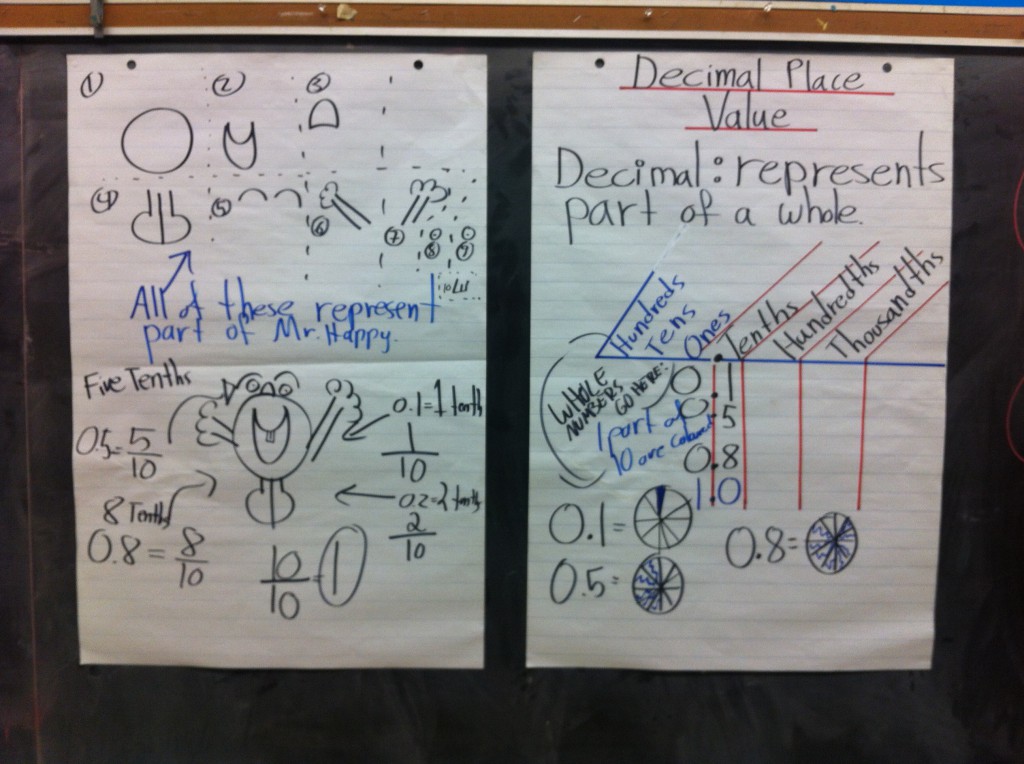 ① ② ③
④ ⑤ ⑥ ⑦ ⑧ ⑨
10
All of these represent
part of Mr. Happy.
Five Tenths
0.5 = 5/10
8 Tenths
0.8 = 8/10
10/10 = 1
0.1 = 1 tenth
1/10
0.2 = 2 tenths
2/10
Decimal Place
Value
Decimal: represents
part of a whole.
Hundreds
Tens
Ones
Tenths
Hundredths
Thousandths
WHOLE
NUMBERS
GO HERE:
1 part of
10 are coloured
0.1
0.5
0.8
1.0
0.1 =
0.5 =
0.8 =